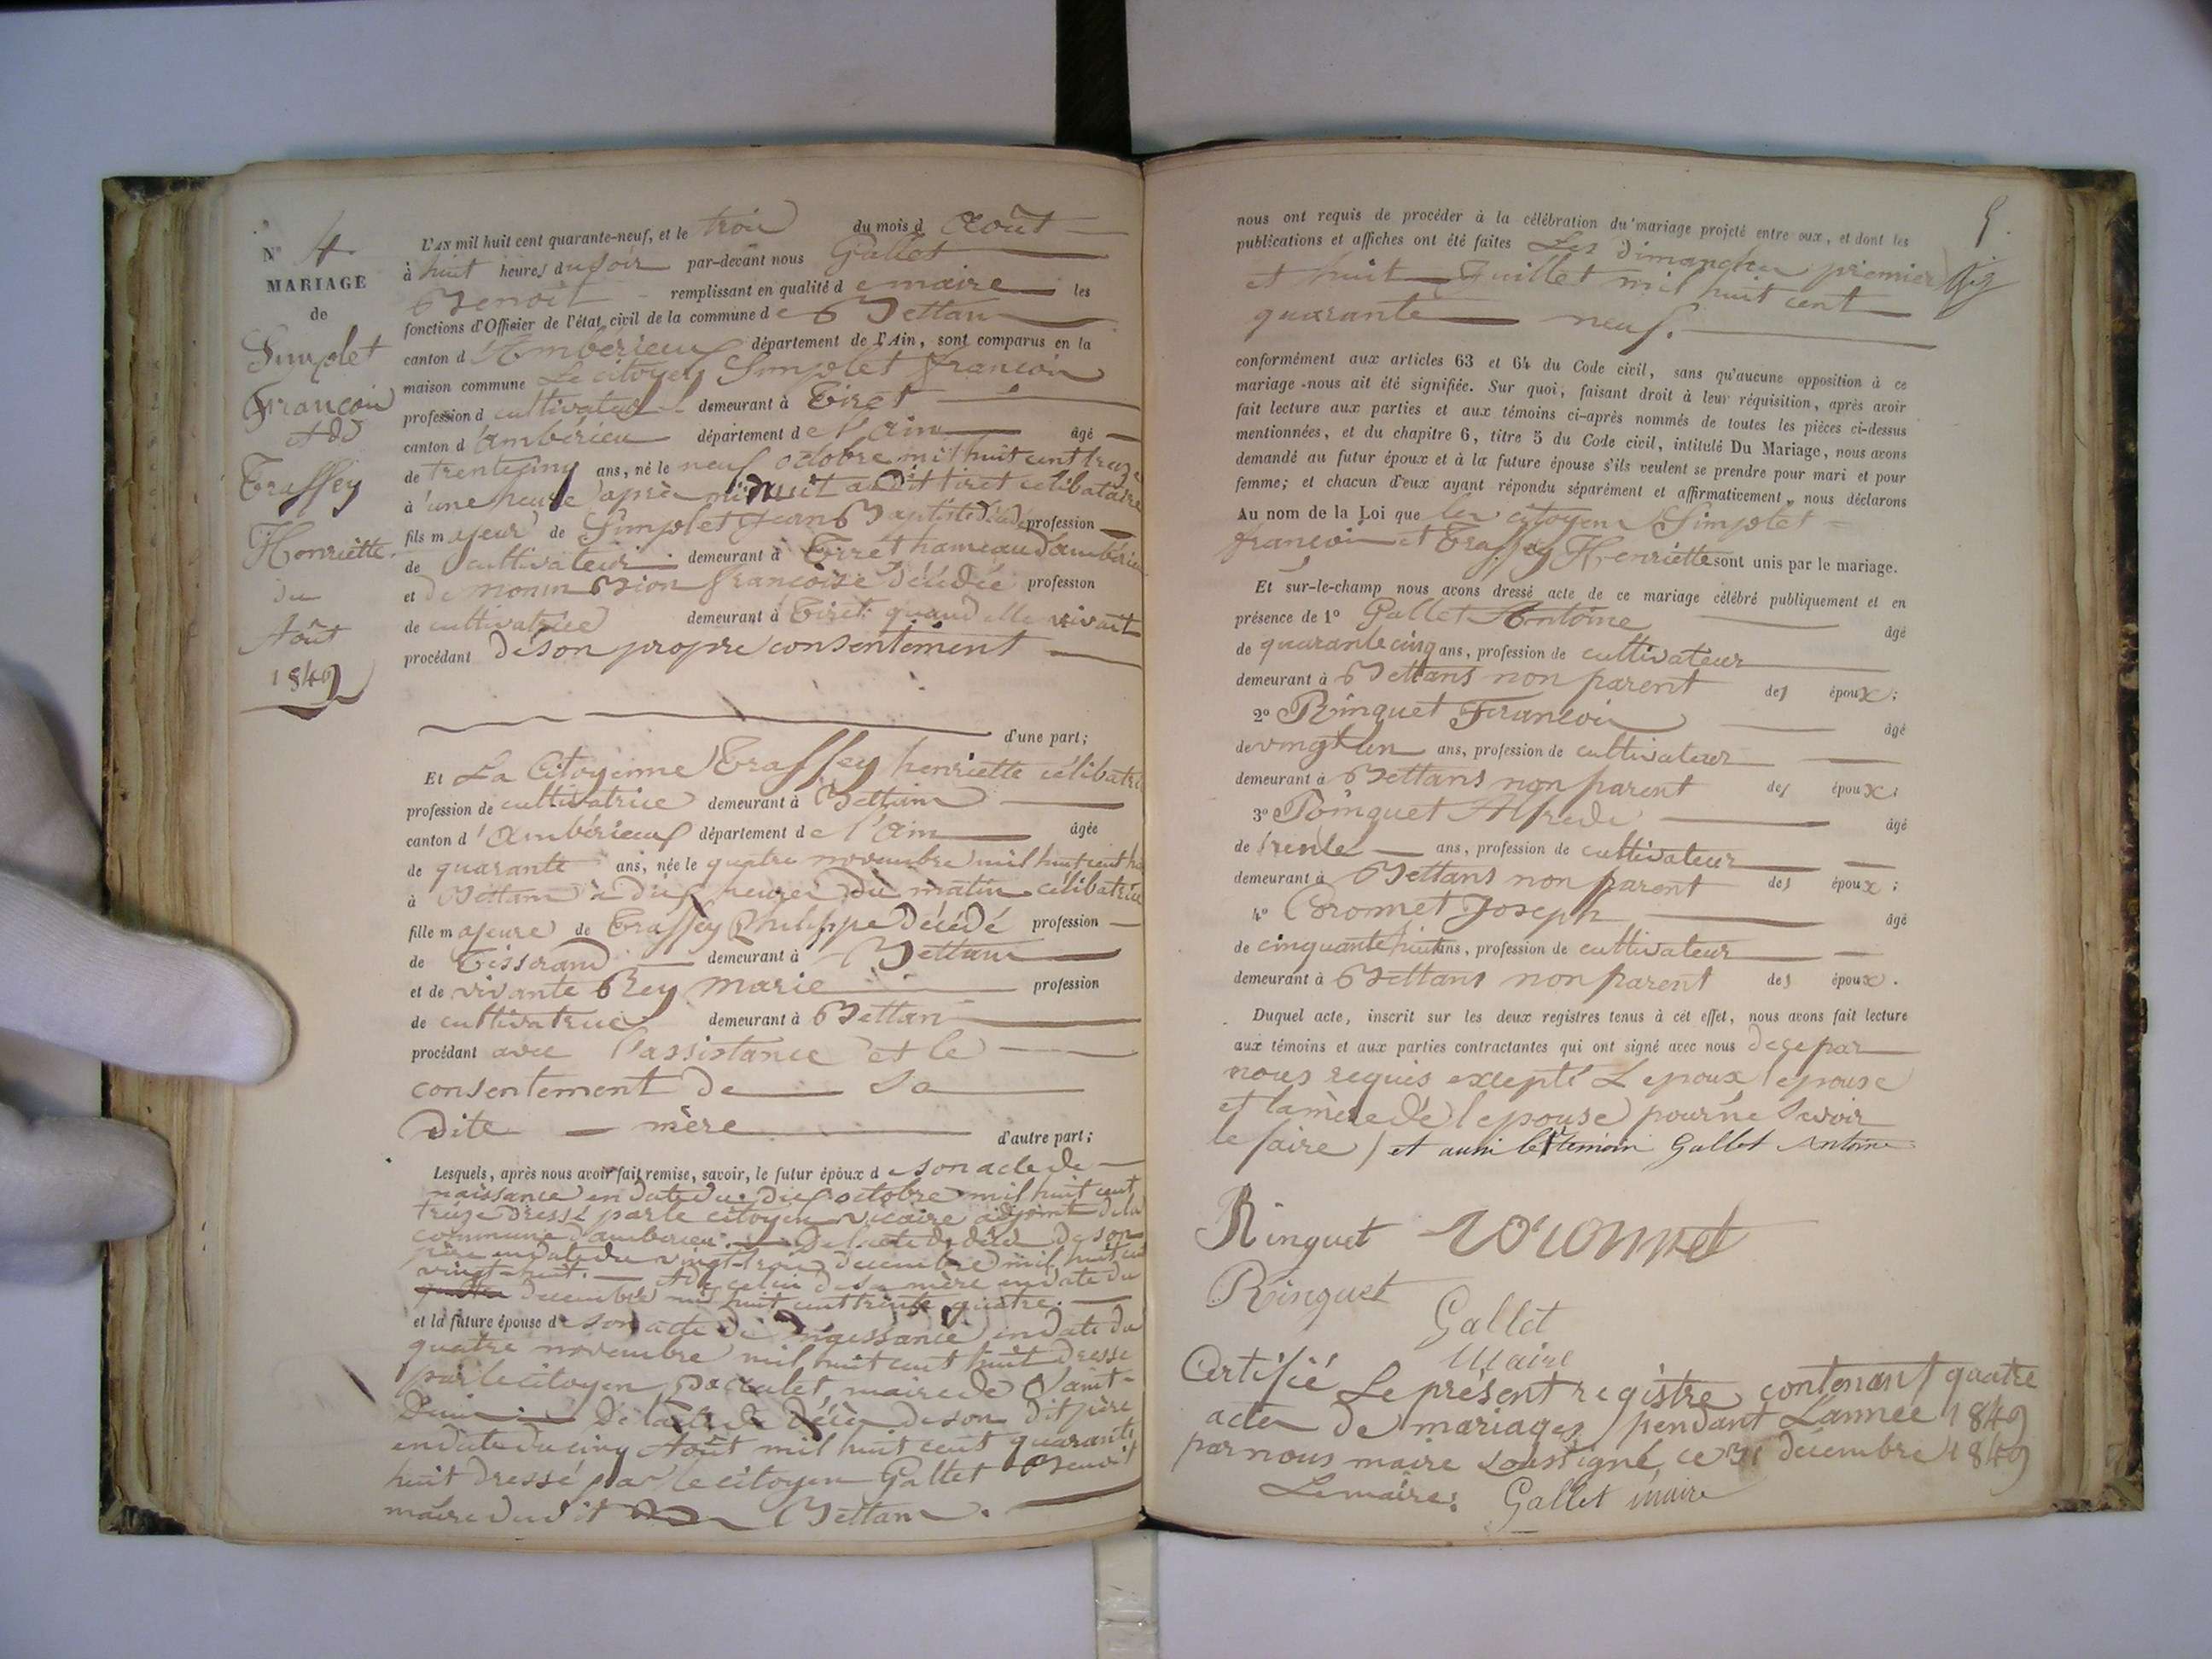 N° 4.
MARIAGE
de
Simplet
François
et de
Traffey
Henriette.
du
Août
1849
L'AN mil huit cent quarante-neuf, et le trois du mois d Août
à huit heures du soir par-devant nous Gallet
Benoit remplissant en qualité de maire les
fonctions d'Officier de l'état civil de la commune de Bettans
canton d'Ambérieux département de l'Ain, sont comparus en la
maison commune Le citoyen Simplet françois
profession d cultivateur demeurant à Tiret
canton d'ambérieu département de l'ain âgé
de trentecinq ans, né le neuf octobre mil huit cent treize
à une heure après minuit audit tiret célibataire
fils majeur de Simplet Jean Baptiste décédé profession
de cultivateur demeurant à Tiret hameau d'ambérieu
et de monin Bion françoise décédée profession
de cultivatrice demeurant à Tiret quand elle vivait
procédant de son propre consentement
d'une part;
Et La Citoyenne Traffey henriette célibatrice
profession de cultivatrice demeurant à Bettans
canton d'ambérieux département de l'ain âgée
de quarante ans, née le quatre novembre mil huit cent huit
à Bettans à dix heures du matin célibatrice
fille majeure de Traffey Philippe décédé profession
de Tisserand demeurant à Bettans
et de vivante Rey marie profession
de cultivatrice demeurant à Bettans
procédant avec l'assistance et le
consentement de sa
dite mère
d'autre part;
Lesquels, après nous avoir fait remise, savoir, le futur époux de son acte de
naissance en date du dix octobre mil huit cent
treize dressé par le citoyen vicaire adjoint de la
commune d'amberieu. De l'acte de décès de son
père en date du vingt-trois decembre mil huit cent
vingt-huit. et de celui de sa mère en date du
decembre mil huit cent trente quatre.
et la future épouse de son acte de naissance en date du
quatre novembre mil huit cent huit dressé
par le citoyen maire de Saint-
Denis De l'acte de décès de son dit père
en date du cinq Août mil huit cent quarante
huit dressé par le citoyen Gallet Benoit
maire dudit Bettans.
5.
nous ont requis de procéder à la célébration du mariage projeté entre eux, et dont les
publications et affiches ont été faites Les dimanches premier
et huit Juillet mil huit cent
quarante neuf.
conformément aux articles 63 et 64 du Code civil, sans qu'aucune opposition à ce
mariage nous ait été signifiée. Sur quoi, faisant droit à leur réquisition, après avoir
fait lecture aux parties et aux témoins ci-après nommés de toutes les pièces ci-dessus
mentionnées, et du chapitre 6, titre 5 du Code civil, intitulé Du Mariage, nous avons
demandé au futur époux et à la future épouse s'ils veulent se prendre pour mari et pour
femme; et chacun d'eux ayant répondu séparément et affirmativement, nous déclarons
Au nom de la Loi que les citoyens Simplet
françois et Traffey Henriette sont unis par le mariage.
Et sur-le-champ nous avons dressé acte de ce mariage célébré publiquement et en
présence de 1° Gallet Antoine âgé
de quarante cinq ans, profession de cultivateur
demeurant à Bettans non parent des époux;
2° Ringuet François âgé
de vingt un ans, profession de cultivateur
demeurant à Bettans non parent des époux;
3° Roinguet Alfrede âgé
de trente ans, profession de cultivateur
demeurant à Bettans non parent des époux;
4° Coromet Joseph âgé
de cinquante huit ans, profession de cultivateur
demeurant à Bettans non parent des époux.
Duquel acte, inscrit sur les deux registres tenus à cet effet, nous avons fait lecture
aux témoins et aux parties contractantes qui ont signé avec nous de ce par
nous requis excepté L epoux l epouse
et la mère de l epouse pour ne Savoir
le faire / et aussi le 1er temoin Gallet Antoine
Ringuet
Ringuet
Gallet
Maire
Certifié Le présent registre contenant quatre
actes de mariages pendant L'annee 1849
par nous maire soussigné, ce 31 décembre 1849
Le maire: Gallet maire